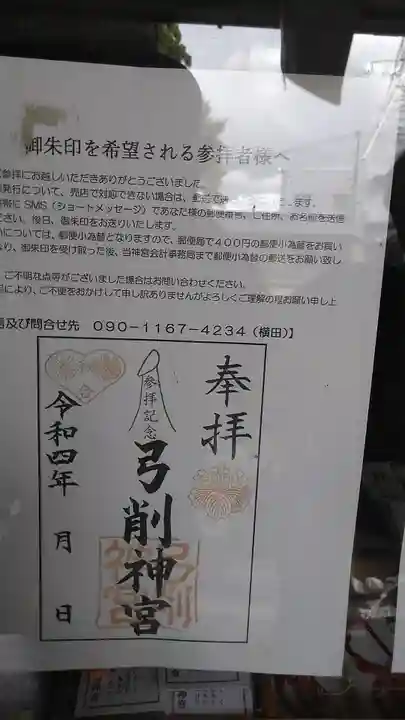 御朱印を希望される参拝者様へ
参拝にお越しいただきありがとうございました
発行について、売店で対応できない場合は、郵送で
帯に SMS（ショートメッセージ）であなた様の郵便番号、ご住所、お名前を送信
ださい。後日、御朱印をお送りいたします。
については、郵便小為替となりますので、郵便局で４００円の郵便小為替をお買い
なり、御朱印を受け取った後、当神宮会計事務局まで郵便小為替の郵送をお願い致し
ご不明な点等がございました場合はお問い合わせください。
により、ご不便をおかけして申し訳ありませんがよろしくご理解の程お願い申し上
及び問合せ先 090-1167-4234（横田）】
奉拝
参拝記念
弓削神宮
令和四年 月 日